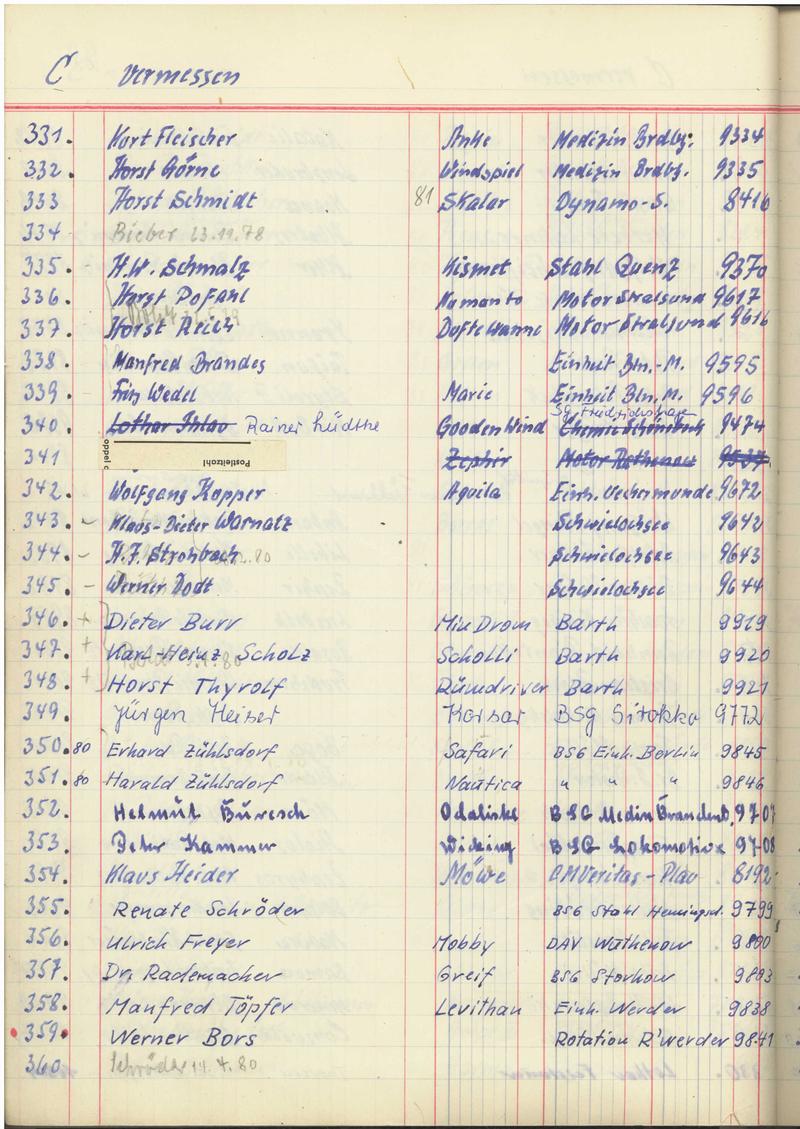 C Vermessen
331. Kurt Fleischer Anke Medizin Brdbg. 9334
332. Horst Görne Windspiel Medizin Brdbg. 9335
333 Horst Schmidt 81 Skalar Dynamo-S. 8416
334 Bieber 23.11.78
335. H.W. Schmalz Kismet Stahl Quenz 9370
336. Horst Pofahl Namanto Motor Stralsund 9617
337. Horst Reich Motor Stralsund 9616
338. Manfred Brandes Einheit Bln.-M. 9595
339. Fritz Wedel Marie Einheit Bln.M. 9596
SG Friedrichshagen
340. Lothar Ihlau Rainer Lüdthe Gooden Wind Chemie Schönebeck 9474
341 Postleitzahl Zephir Motor Rathenau 9537
342. Wolfgang Kopper Aquila Einh. Ueckermünde 9672
343. - Klaus-Dieter Warnatz Schwielochsee 9642
344. - H.J. Strohbach Schwielochsee 9643
345. - Werner Dodt Schwielochsee 9644
346. + Dieter Burr Miu Drom Barth 9919
347. + Karl-Heinz Scholz Scholli Barth 9920
348. + Horst Thyrolf Rümdriver Barth 9921
349. Jürgen Heiser Korsar BSG Sirokko 9772
350. 80 Erhard Zühlsdorf Safari BSG Einh. Berlin 9845
351. 80 Harald Zühlsdorf Nautica " " " 9846
352. Helmut Buresch Odaliske BSG Medizin Brandenb. 9707
353. Peter Kammer Wicking BSG Lokomotive 9708
354. Klaus Heider Möwe CM Veritas - Plau 8192
355. Renate Schröder BSG Stahl Hennigsd. 9799
356. Ulrich Freyer Mobby DAV Wuthenow 9800
357. Dr. Rademacher Greif BSG Storkow 9803
358. Manfred Töpfer Levithan Einh. Werder 9838
359. Werner Bors Rotation R'werder 9841
360 Schröder 14.4.80